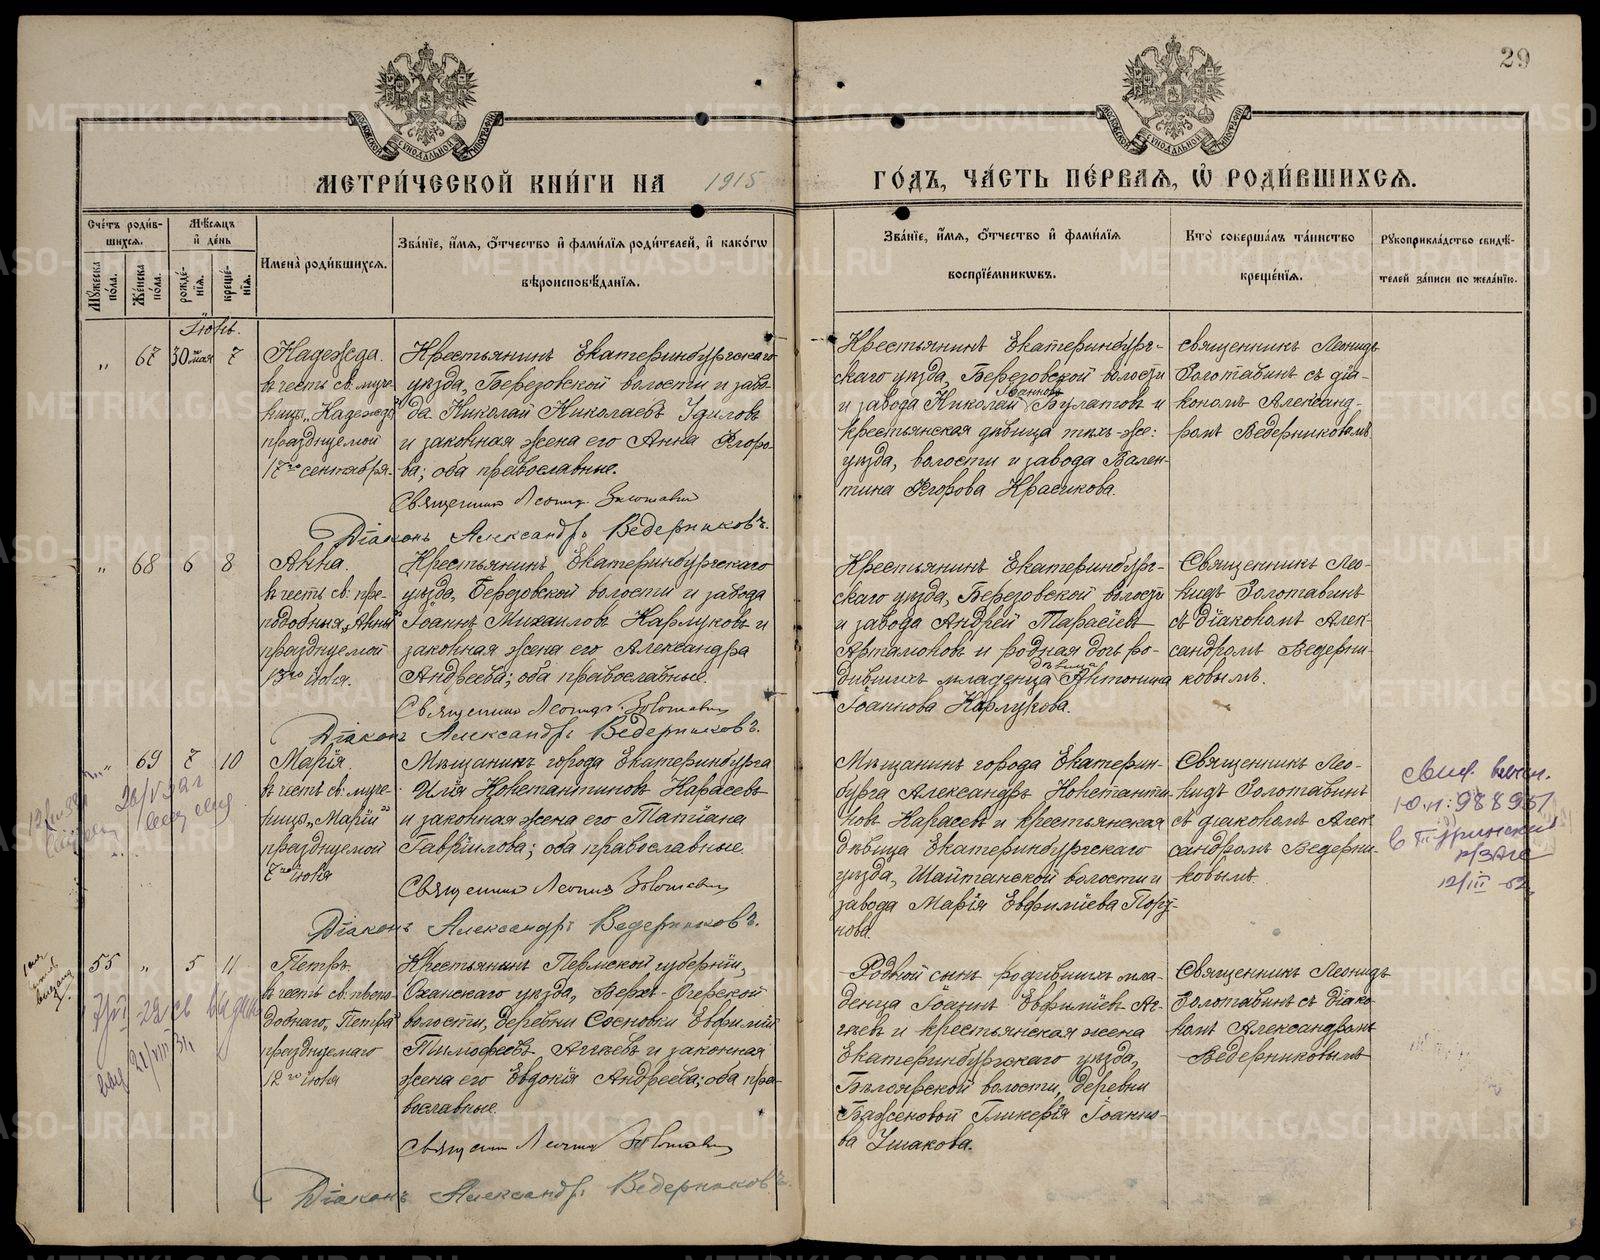 29
МЕТРИ́ЧЕСКОЙ КНИ́ГИ НА 1915 ГО́ДЪ, ЧА́СТЬ ПЕ́РВАѦ, Ѽ РОДИ́ВШИХСѦ.
Сче́тъ роди́в-
шихсѧ.
Мꙋ́жеска по́ла.
Же́нска по́ла.
Мѣ́сѧцъ
и҆ де́нь
рожде́-
нїѧ.
креще́-
нїѧ.
И҆мена̀ роди́вшихсѧ.
Зва́нїе, и҆́мѧ, ѻ҆́тчество и҆ фами́лїѧ роди́телей, и҆ како́гѡ
вѣроисповѣ́данїѧ.
Зва́нїе, и҆́мѧ, ѻ҆́тчество и҆ фами́лїѧ
воспрїе́мникѡвъ.
Кто̀ соверша́лъ та́инство
креще́нїѧ.
Рꙋкоприкла́дство свидѣ́-
телей за́писи по жела́нїю.
Іюнь.
" 67 30 мая 7
Надежда.
въ честь св: муче-
ницы "Надежды"
празднуемой
17го сентября.
Крестьянинъ Екатеринбургскаго
уѣзда, Березовской волости и заво-
да Николай Николаевъ Удиловъ
и законная жена его Анна Егоро-
ва; оба православные.
Священникъ Леонид Золотавин
Діаконъ Александръ Ведерниковъ.
Крестьянинъ Екатеринбург-
скаго уѣзда, Березовской волости
и завода Николай Іоанновъ Булатовъ и
крестьянская дѣвица тѣхъ-же:
уѣзда, волости и завода Вален-
тина Егорова Красикова.
священникъ Леонидъ
Золотавинъ съ діа-
кономъ Александ-
ромъ Ведерниковымъ
" 68 6 8
Анна.
въ честь св: пре-
подобныя "Анны"
празднуемой
13го іюня.
Крестьянинъ Екатеринбургскаго
уѣзда, Березовской волости и завода
Іоаннъ Михаиловъ Карлуковъ и
законная жена его Александра
Андреева; оба православные.
Священникъ Леонидъ Золотавин
Діаконъ Александръ Ведерниковъ.
Крестьянинъ Екатеринбург-
скаго уѣзда, Березовской волости
и завода Андрей Тарасіевъ
Артамоновъ и родная дочь ро-
дившихъ младенца дѣвица Антонина
Іоаннова Карлукова.
Священникъ Лео-
нидъ Золотавинъ
съ діакономъ Алек-
сандромъ Ведерни-
ковымъ.
" 69 7 10
Марія.
въ честь св: муче-
ницы "Маріи"
празднуемой
7го іюня
Мѣщанинъ города Екатеринбурга
Илія Константиновъ Карасевъ
и законная жена его Татіана
Гавріилова; оба православные
Священникъ Леонид Золотавин
Діаконъ Александръ Ведерниковъ.
Мѣщанинъ города Екатерин-
бурга Александръ Константи-
новъ Карасевъ и крестьянская
дѣвица Екатеринбургскаго
уѣзда, Шайтанской волости и
завода Марія Евфиміева Пору-
нова.
Священникъ Лео-
нидъ Золотавинъ
съ діакономъ Алек-
сандромъ Ведерни-
ковымъ
988957
12/III
55 " 5 11
Петръ
въ честь св: препо-
добнаго "Петра"
празднуемаго
12го іюня
Крестьянинъ Пермской губерніи,
Оханскаго уѣзда, Верхъ-Очерской
волости, деревни Сосновки Евфимій
Тимофеевъ Агѣевъ и законная
жена его Евдокія Андреева; оба пра-
вославные.
Священникъ Леонид Золотавин
Діаконъ Александръ Ведерниковъ.
Родной сынъ родившихъ мла-
денца Іоаннъ Евфиміевъ Аг-
ѣевъ и крестьянская жена
Екатеринбургскаго уѣзда,
Бѣлоярской волости, деревни
Баженовой Гликерія Іоанно-
ва Ушакова.
Священникъ Леонидъ
Золотавинъ съ діако-
номъ Александромъ
Ведерниковымъ
METRIKI.GASO-URAL.RU